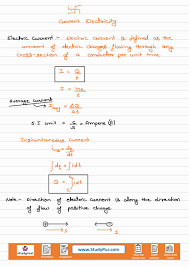 Current Electricity
Electric Current :- Electric current is defined as the
amount of electric charges flowing through any
cross-section of a conductor per unit time.
I = Q/t
I = ne/t
Average Current
Iavg = ΔQ/Δt
S.I Unit = C/s = Ampere (A)
Instantaneous Current
Iins = dq/dt
∫dq = ∫Idt
Q = ∫Idt
Note:- Direction of electric current is along the direction
of flow of positive charge.
www.StudyPur.com